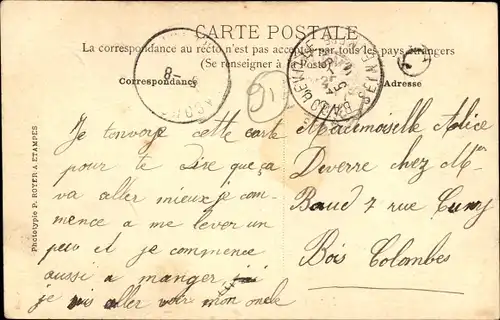 CARTE POSTALE
La correspondance au recto n'est pas acceptée par tous les pays étrangers
(Se renseigner à la Poste)
Correspondance
Adresse
91
Je t'envoye cette carte
pour te dire que ça
va aller mieux je com-
mence a me lever un
peu et je commence
aussi a manger
je vais aller voir mon oncle
Mademoiselle Alice
Deverre chez Mr
Baud 7 rue Cuny
Bois Colombes
Phototypie P. ROYER A ETAMPES